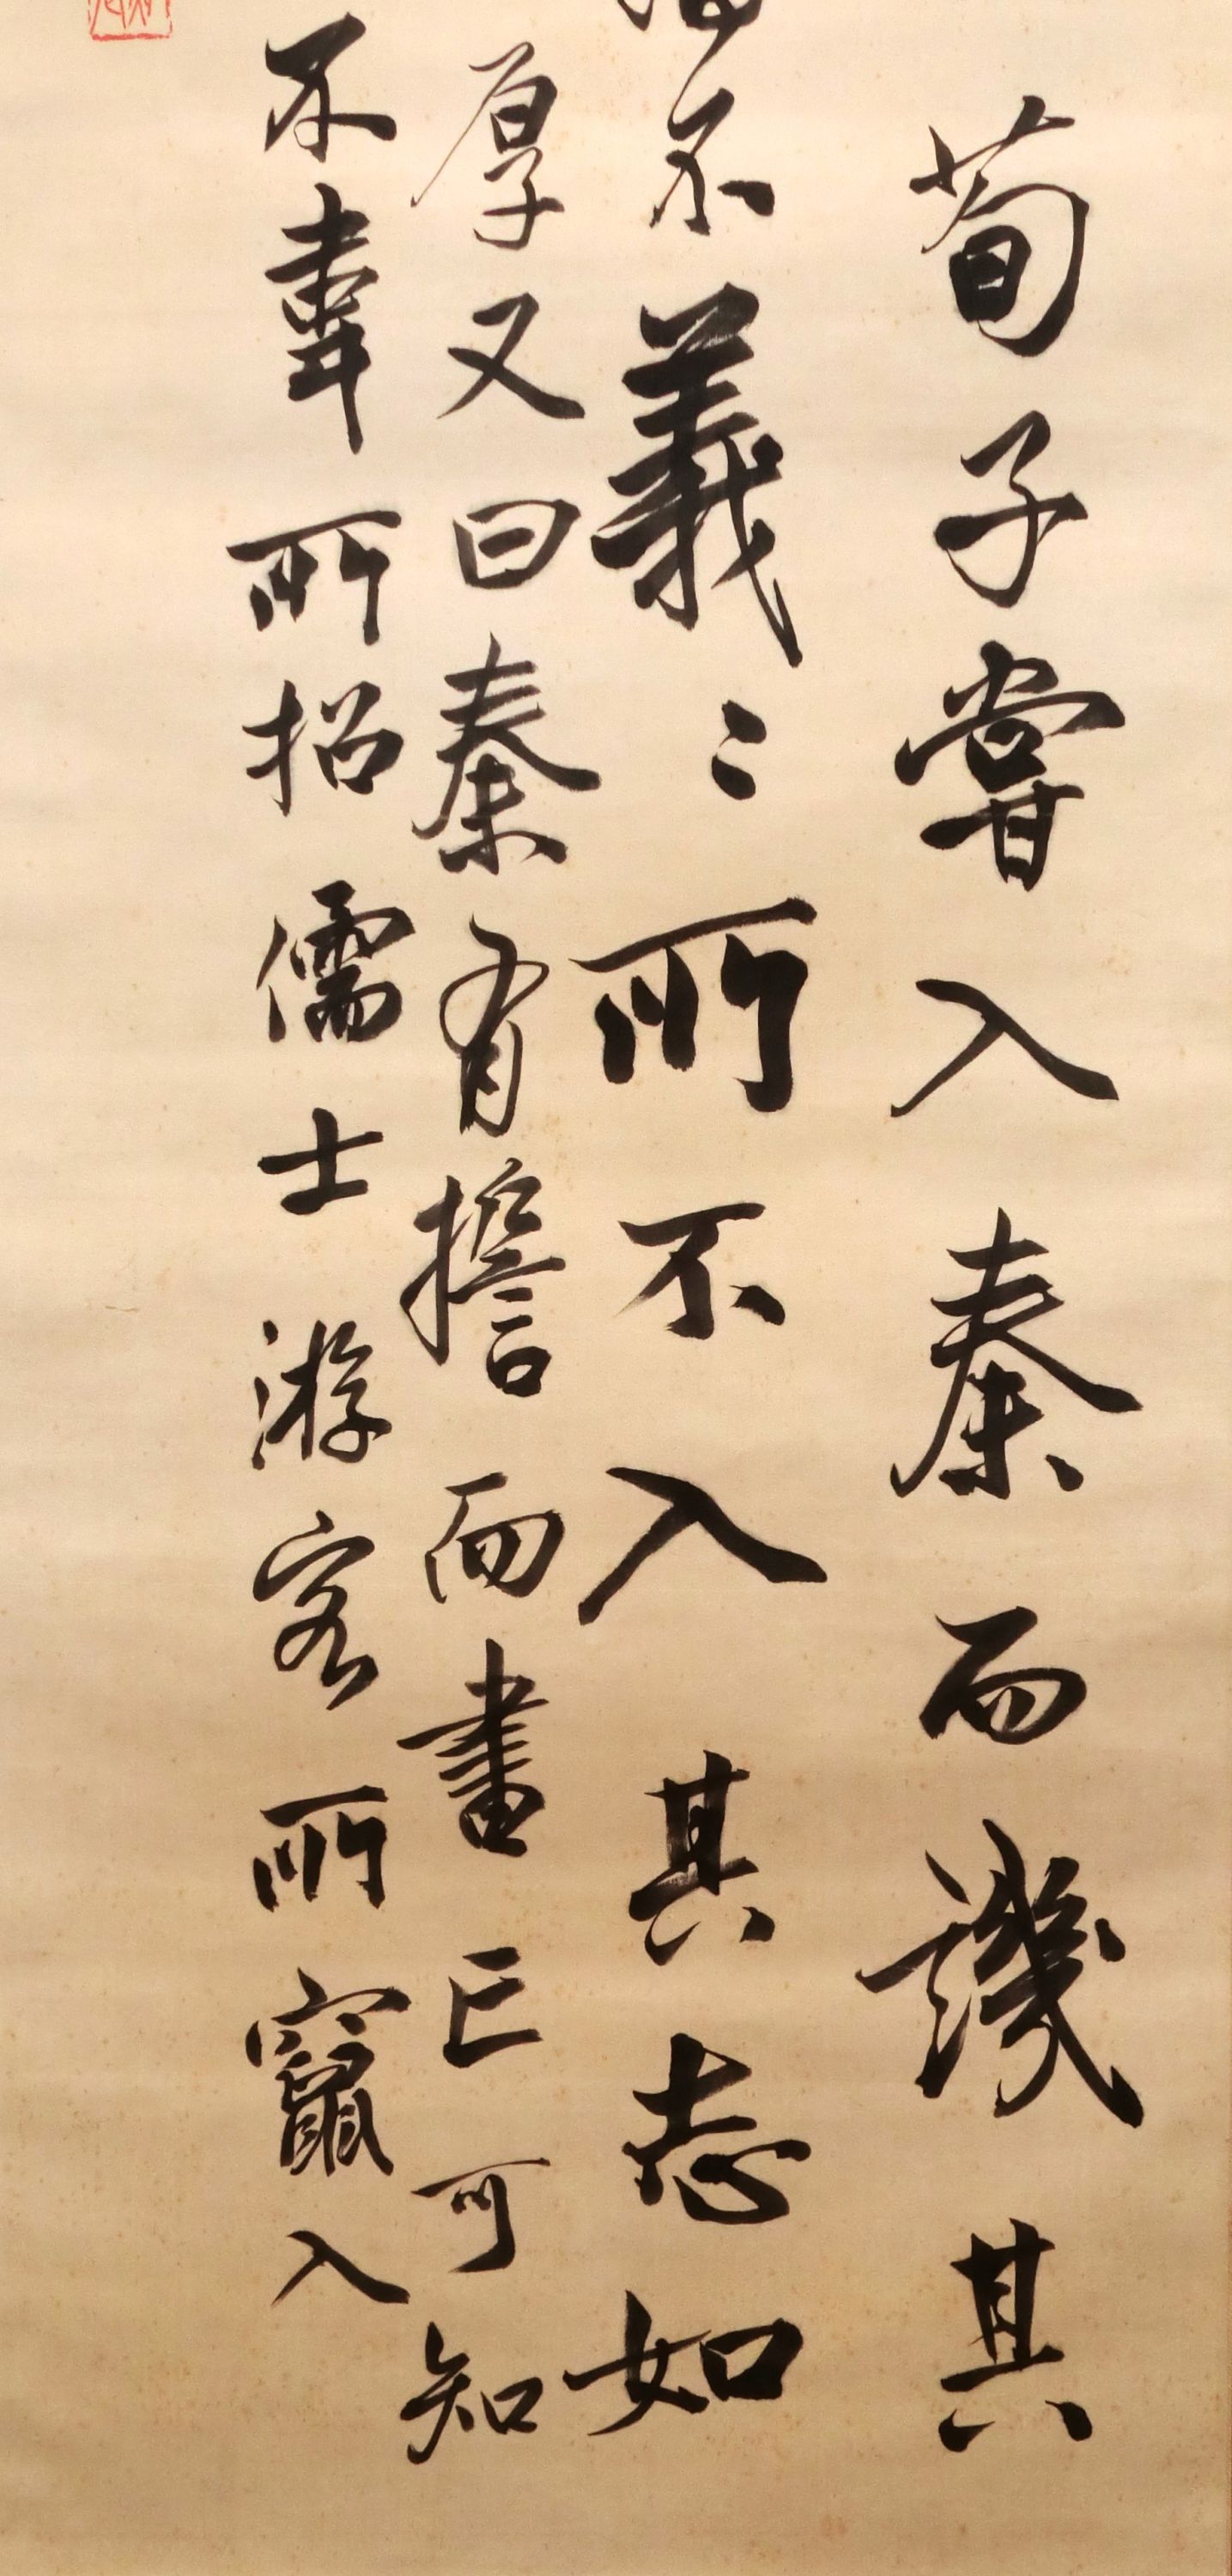 荀子嘗入秦而譏其
不義〻所不入其志如
厚又曰秦有擔而畫已可知
不韋所招儒士游客所竄入